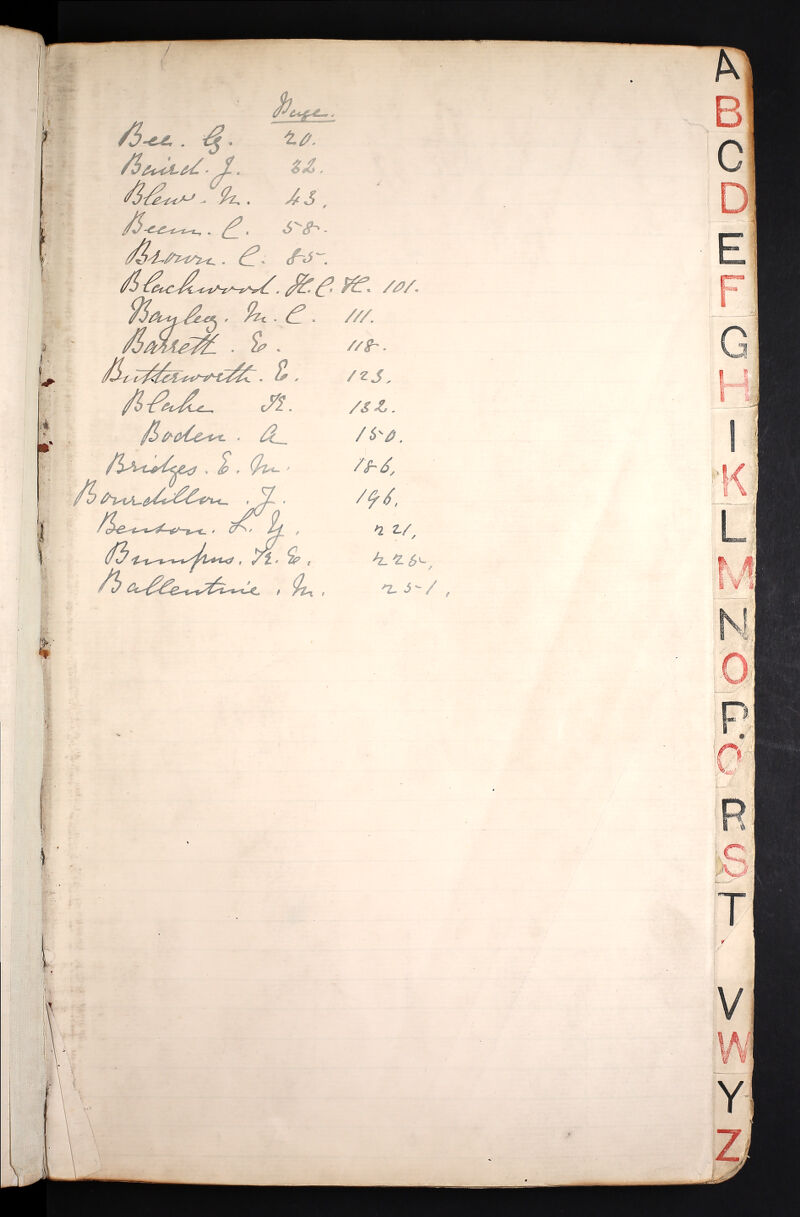 Page.
Bee. G. 20.
Baird. J. 32.
Blew. M. 43.
Beem. C. 58.
Brown. C. 85.
Blackwood. H. C. H. 101.
Bayley. M. C. 111.
Barrett. E. 118.
Butterworth. E. 123.
Blake K. 132.
Boden. A 150.
Bridges. E. M. 186,
Bourdillon. J. 196,
Benson. L. Y. 221,
Bumpus. K. E. 225,
Ballentine. M. 251,
A
B
C
D
E
F
G
H
I
K
L
M
N
O
P.
Q
R
S
T
V
W
Y
Z